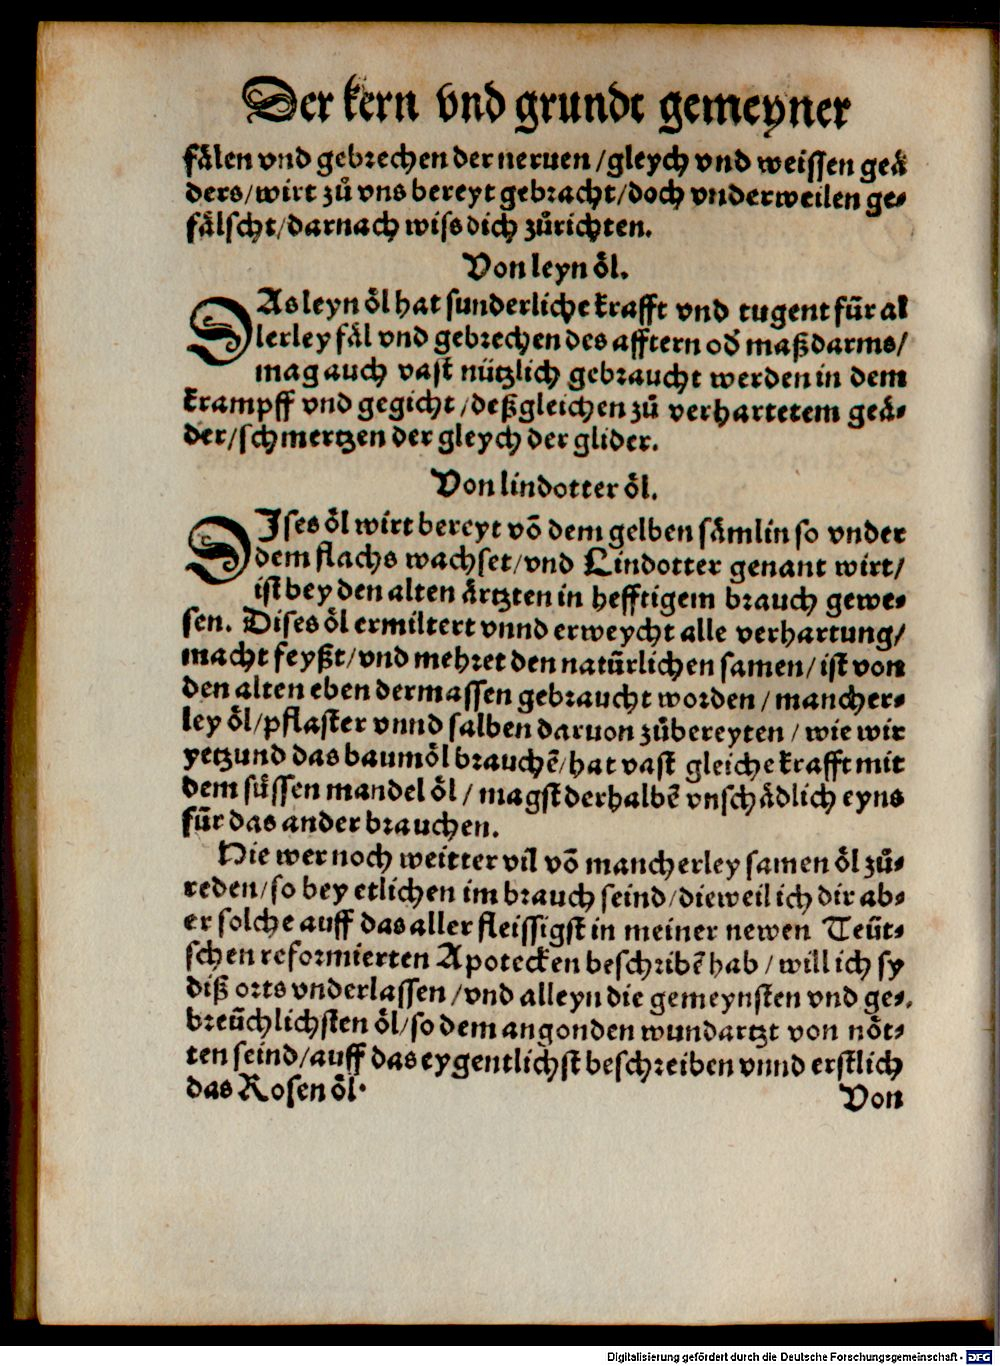 Der kern vnd grundt gemeyner
fålen vnd gebrechen der neruen/gleych vnd weissen geå
ders/wirt zů vns bereyt gebracht/doch vnderweilen ge⸗
fålscht/darnach wiß dich zůrichten.
Von leyn ȏl.
DAs leyn ȏl hat sunderliche krafft vnd tugent für al
lerley fål vnd gebrechen des afftern od̕ maßdarms/
mag auch vast nützlich gebraucht werden in dem
krampff vnd gegicht/deßgleichen zů verhartetem geå⸗
der/schmertzen der gleych der glider.
Von lindotter ȏl.
DIses ȏl wirt bereyt võ dem gelben såmlin so vnder
dem flachs wachset/vnd Lindotter genant wirt/
ist bey den alten årtzten in hefftigem brauch gewe⸗
sen. Dises ȏl ermiltert vnnd erweycht alle verhartung/
macht feyßt/vnd mehret den natürlichen samen/ist von
den alten eben dermassen gebraucht worden/mancher⸗
ley ȏl/pflaster vnnd salben daruon zůbereyten/wie wir
yetzund das baumȏl brauchẽ/hat vast gleiche krafft mit
dem süssen mandel ȏl/magst derhalbẽ vnschådlich eyns
für das ander brauchen.
Hie wer noch weitter vil võ mancherley samen ȏl zů⸗
reden/so bey etlichen im brauch seind/dieweil ich dir ab⸗
er solche auff das aller fleissigst in meiner newen Teüt⸗
schen reformierten Apotecken beschribẽ hab/will ich sy
diß orts vnderlassen/vnd alleyn die gemeynsten vnd ge⸗
breüchlichsten ȏl/so dem angonden wundartzt von nȏt⸗
ten seind/auff das eygentlichst beschreiben vnnd erstlich
das Rosen ȏl.
Von
Digitalisierung gefördert durch die Deutsche Forschungsgemeinschaft - DFG